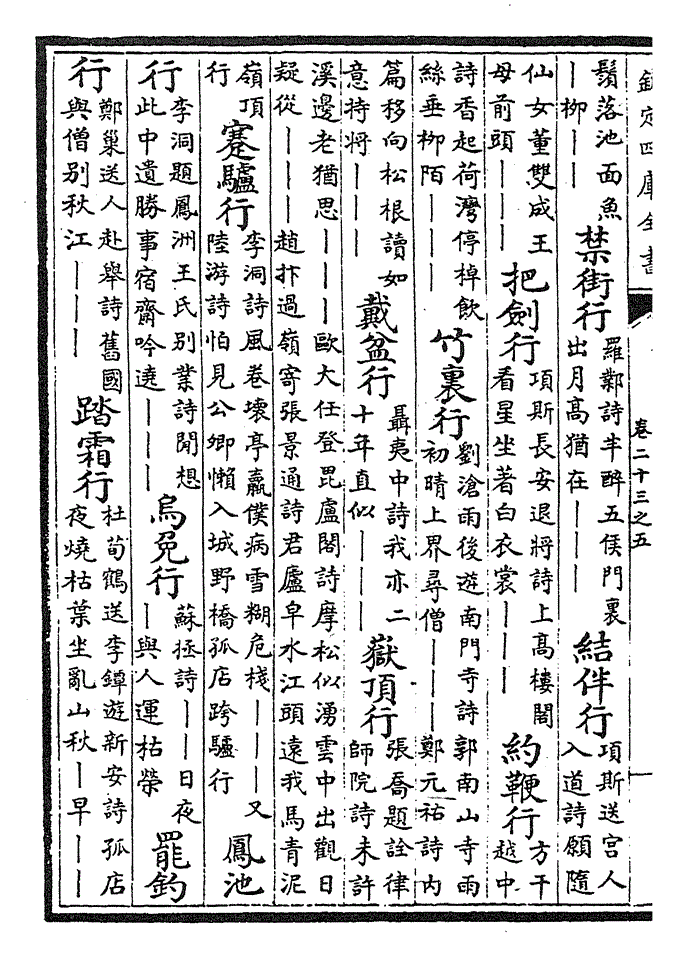 欽定四庫全書
卷二十三之五
鬚落池面魚
丨柳丨丨
禁街行
羅鄴詩半醉五侯門裏
出月高猶在丨丨丨
結伴行
項斯送宮人
入道詩願隨
仙女董雙成王
母前頭丨丨丨
把劍行
項斯長安退將詩上高樓閣
看星坐著白衣裳丨丨丨
約鞭行
方干
越中
詩香起荷灣停棹飲
絲垂柳陌丨丨丨
竹裏行
劉滄雨後遊南門寺詩郭南山寺雨
初晴上界尋僧丨丨丨鄭元祐詩內
篇移向松根讀如
意持將丨丨丨
戴盆行
聶夷中詩我亦二
十年直似丨丨丨
嶽頂行
張喬題詮律
師院詩未許
溪邊老猶思丨丨丨歐大任登毘盧閣詩摩松似湧雲中出觀日
疑從丨丨丨趙抃過嶺寄張景通詩君廬皁水江頭遠我馬青泥
嶺頂
行
蹇驢行
李洞詩風卷壞亭羸僕病雪糊危棧丨丨丨又
陸游詩怕見公卿懶入城野橋孤店跨驢行
鳳池
行
李洞題鳳洲王氏別業詩聞想
此中遺勝事宿齋吟遶丨丨丨
烏兔行
蘇拯詩丨丨日夜
丨與人運枯榮
罷釣
行
鄭巢送人赴舉詩舊國
與僧別秋江丨丨丨
踏霜行
杜荀鶴送李鐔遊新安詩孤店
夜燒枯葉坐亂山秋丨早丨丨